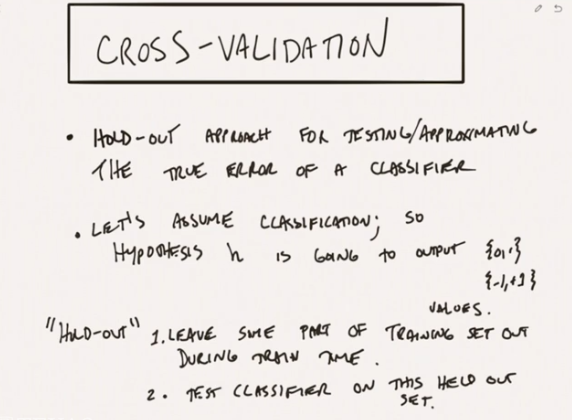 CROSS-VALIDATION
• HOLD-OUT APPROACH FOR TESTING/APPROXIMATING
THE TRUE ERROR OF A CLASSIFIER
• LET'S ASSUME CLASSIFICATION; SO
HYPOTHESIS h IS GOING TO OUTPUT {0,1}
{-1,+1}
VALUES.
"HOLD-OUT" 1. LEAVE SOME PART OF TRAINING SET OUT
DURING TRAIN TIME.
2. TEST CLASSIFIER ON THIS HELD OUT
SET.